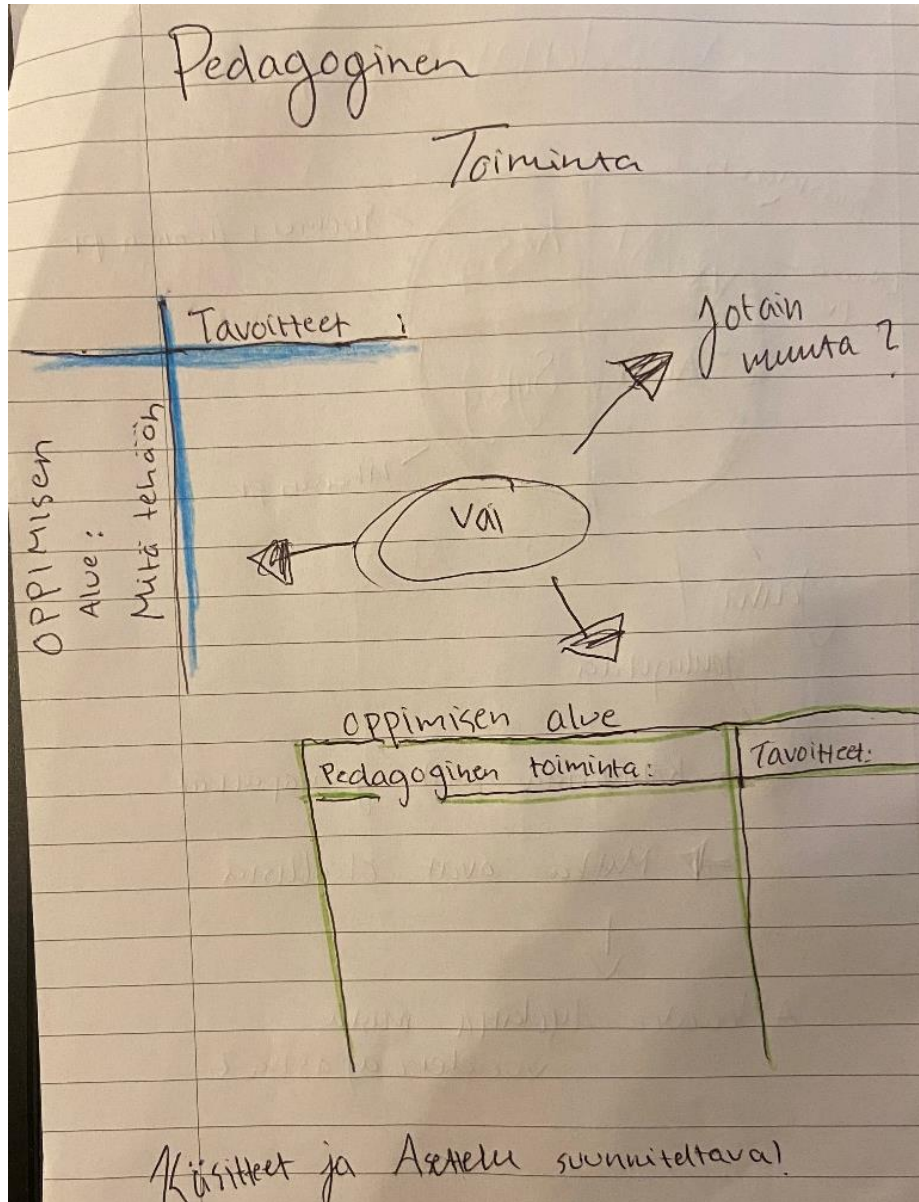 Pedagoginen
Toiminta
Tavoitteet :
Jotain
muuta ?
OPPIMISEN
Alue :
Mitä tehään
Vai
oppimisen alue
Pedagoginen toiminta :
Tavoitteet:
Käsitteet ja Asettelu suunniteltava!